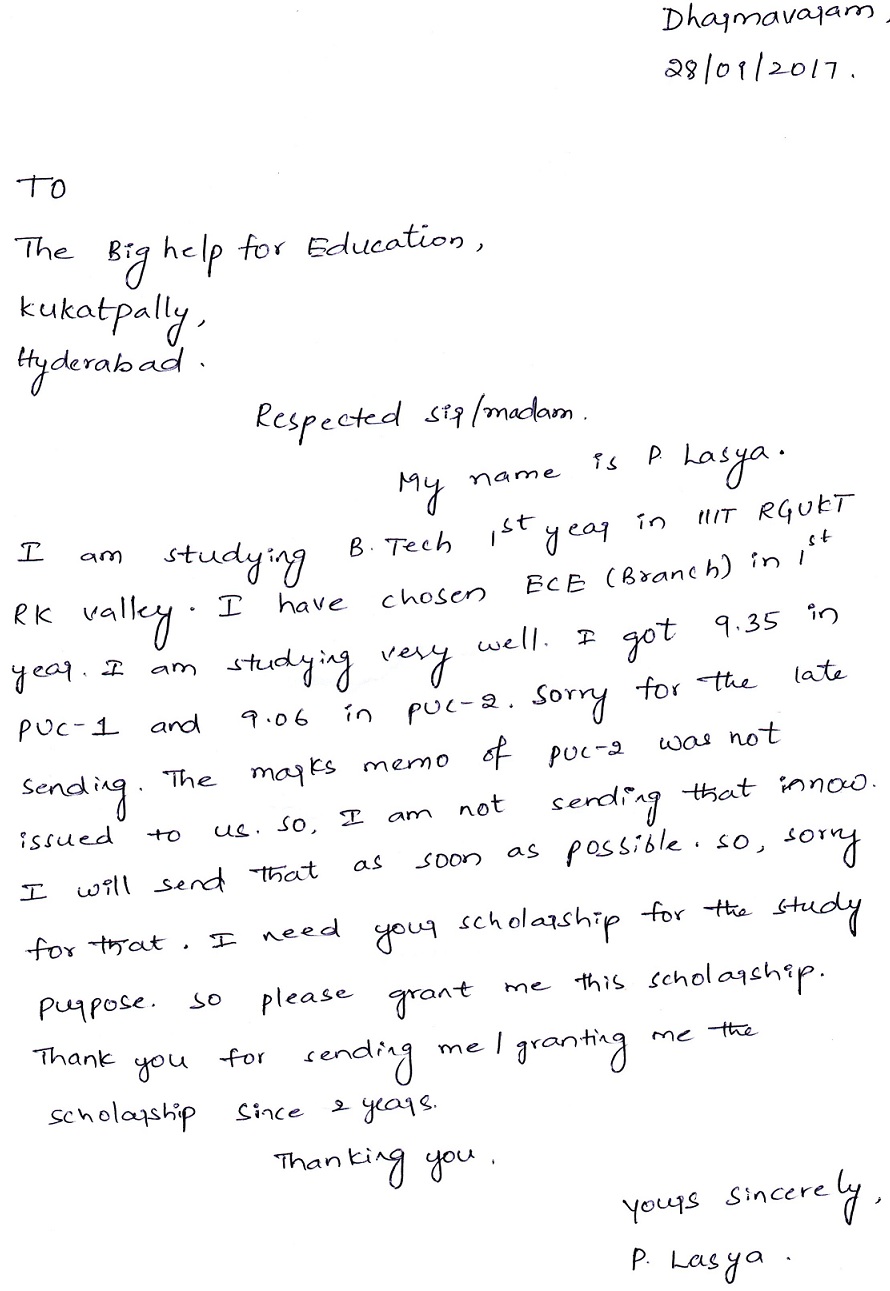 Dharmavaram,
28/09/2017.
TO
The Big help for Education,
kukatpally,
Hyderabad.
Respected sir/madam.
My name is P. Lasya.
I am studying B. Tech 1st year in IIIT RGUKT
RK valley. I have chosen ECE (Branch) in 1st
year. I am studying very well. I got 9.35 in
PUC-1 and 9.06 in PUC-2. Sorry for the late
sending. The marks memo of PUC-2 was not
issued to us. so, I am not sending that innow.
I will send that as soon as possible. so, sorry
for that. I need your scholarship for the study
purpose. so please grant me this scholarship.
Thank you for sending me/granting me the
scholarship since 2 years.
Thanking you.
yours sincerely,
P. Lasya.